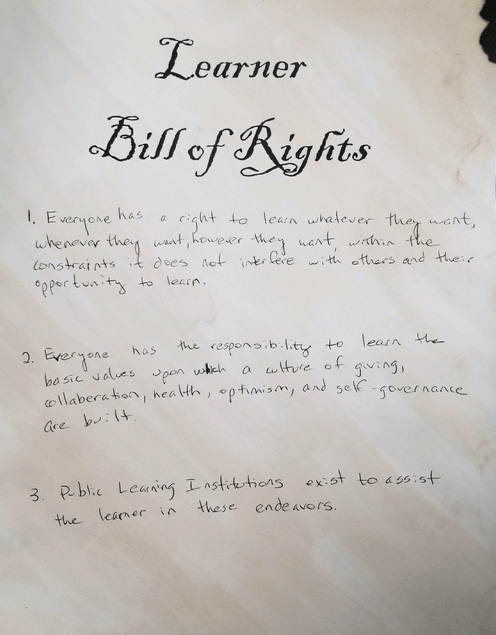 Learner
Bill of Rights
1. Everyone has a right to learn whatever they want,
whenever they want, however they want, within the
constraints it does not interfere with others and their
opportunity to learn.
2. Everyone has the responsibility to learn the
basic values upon which a culture of giving,
collaberation, health, optimism, and self-governance
are built.
3. Public Learning Institutions exist to assist
the learner in these endeavors.